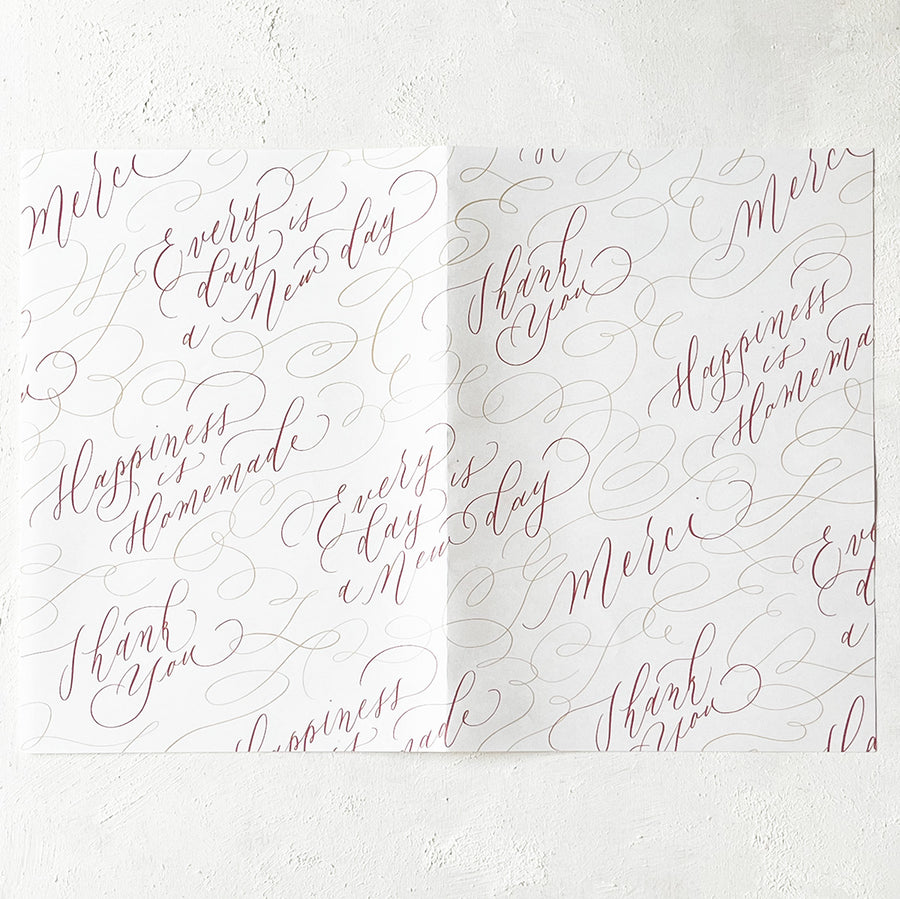 Merci
Every is
day
a New day
Thank
You
Merci
Happiness
is
Homema
Happiness
is
Homemade
Every is
day day
a New
Merci
Eve
d
a
Thank
You
Happiness
is
made
Thank
You